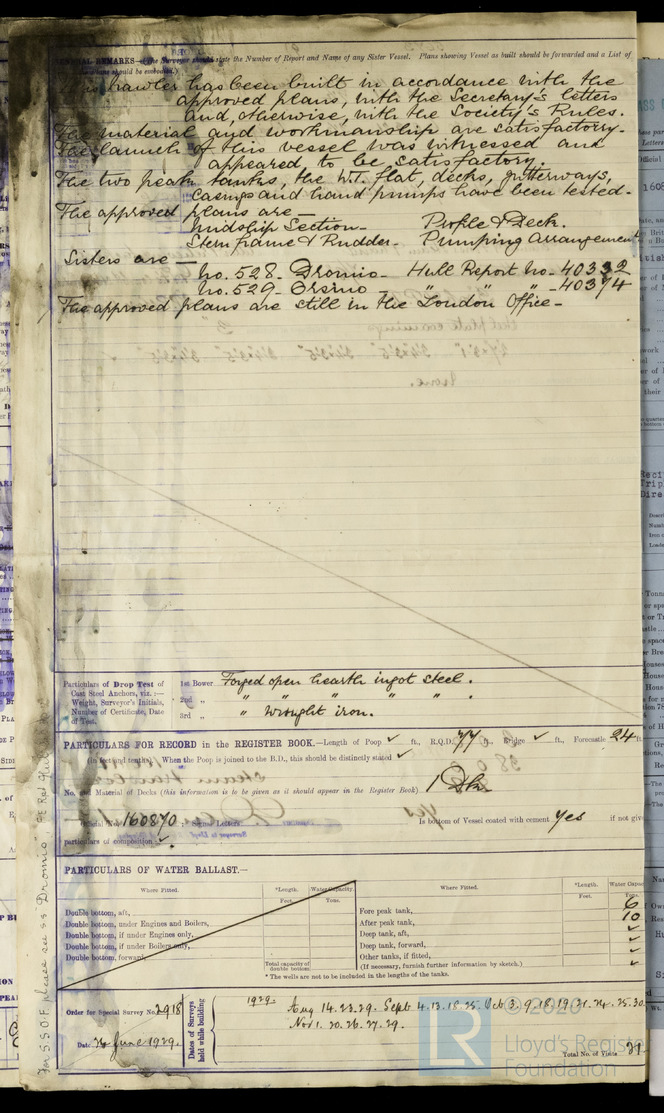 GENERAL REMARKS—(The Surveyor should state the Number of Report and Name of any Sister Vessel. Plans showing Vessel as built should be forwarded and a List of
should be embodied.)
This trawler has been built in accordance with the
approved plans, with the Secretary's letters
and, otherwise, with the Society's Rules.
The material and workmanship are satisfactory.
The launch of this vessel was witnessed and
appeared, to be satisfactory.
The two peak tanks, the W.T. flat, decks, gutterways,
casings and hand pumps have been tested.
The approved plans are—
Midship Section— Profile & Deck.
Sternframe & Rudder— Pumping Arrangement
Sisters are—
No. 528. Dromio— Hull Report No— 40332
No. 529. Orsino— " " " —40374
The approved plans are still in the London Office—
Particulars of Drop Test of
Cast Steel Anchors, viz.:—
Weight, Surveyor's Initials,
Number of Certificate, Date
of Test.
1st Bower Forged open hearth ingot steel.
2nd „ " " " " " .
3rd „ " Wrought iron.
PARTICULARS FOR RECORD in the REGISTER BOOK.—Length of Poop ✓ ft., R.Q.D. 77 ft., Bridge ✓ ft., Forecastle 24 ft.
(in feet and tenths). When the Poop is joined to the B.D., this should be distinctly stated ✓
No. and Material of Decks (this information is to be given as it should appear in the Register Book) 1 Dk
Official No. 160870 Signal Letters Is bottom of Vessel coated with cement Yes if not give
particulars of composition ✓.
PARTICULARS OF WATER BALLAST.—
Where Fitted. *Length. Water Capacity. Where Fitted. *Length. Water Capac
Feet. Tons. Feet. Tons.
Double bottom, aft, Fore peak tank, 6
Double bottom, under Engines and Boilers, After peak tank, 10
Double bottom, if under Engines only, Deep tank, aft, ✓
Double bottom, if under Boilers only, Deep tank, forward, ✓
Double bottom, forward, Other tanks, if fitted, ✓
Total capacity of double bottom (If necessary, furnish further information by sketch.) ✓
* The wells are not to be included in the lengths of the tanks.
Order for Special Survey No. 2918
Date 24 June 1929.
Dates of Surveys held while building
1929. Aug 14.23.29. Sept 4.13.18.25. Oct 3.9.18.19.21.24.25.30
Nov 1.20.26.27.29.
Total No. of Visits 21
© 2020
Lloyd's Register
Foundation